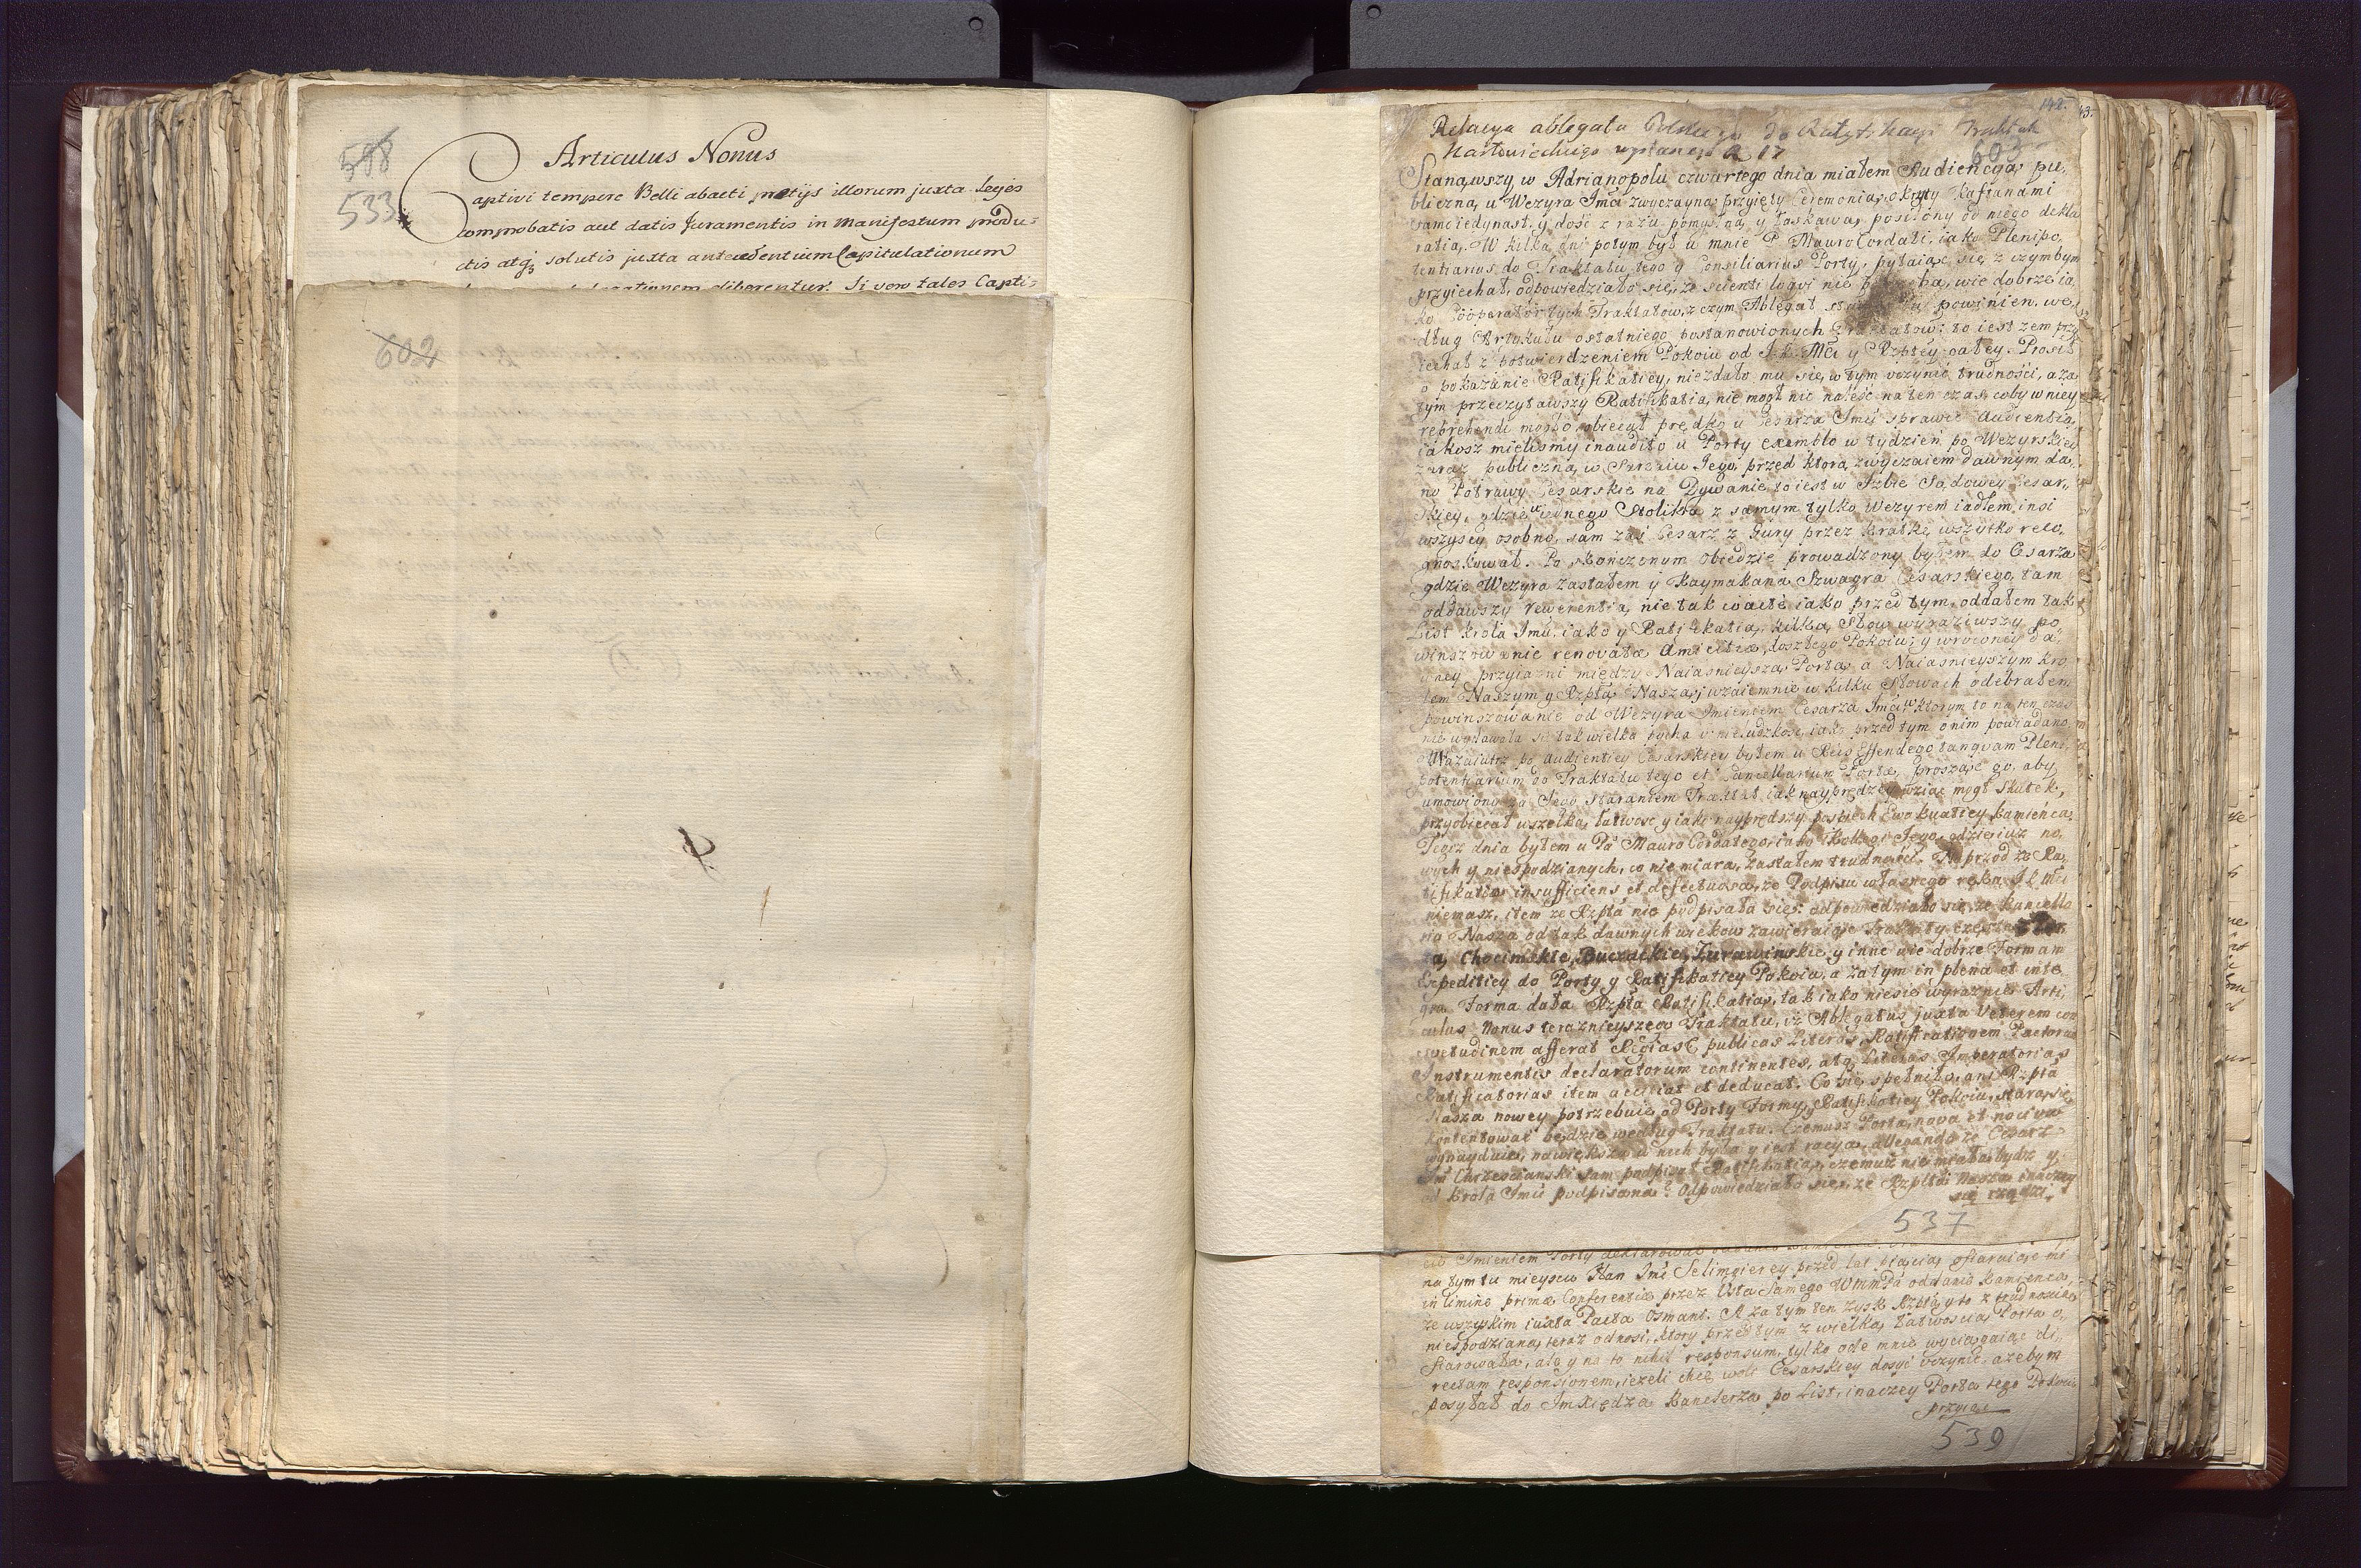 598
533
Articulus Nonus
Captivi tempore Belli abacti pretijs illorum juxta Leges
comprobatis aut datis Juramentis in Manifestum produ=
ctis atq3 solutis juxta antecedentium Capitulationum
liberentur. Si vero tales Capti=
602
142.
43.
Relacya ablegata do Ratyfikacyi Traktatu
Karłowickiego
603
Stanąwszy w Adrianopolu czwartego dnia miałem Audiencyą pu,
bliczną, u Wezyra Imci zwyczayną, przyięty Ceremonią, okryty Kaftanami
samoiedynast, y dość z razu pomyślną, y łaskawą, posilony od niego dekla
ratią. W kilka dni potym był u mnie P. Mauro Cordati, iako Plenipo,
tentiarius do Traktatu tego y Consiliarius Porty, pytaiąc się z czymbym
przyiechał, odpowiedziało się, że scienti loqui nie wie dobrze ia,
ko Cooperator tych Traktatow, z czym Ablegat powinien, we,
dług Artykułu ostatniego postanowionych Traktatow: to iest żem przy
iechał z potwierdzeniem Pokoiu od J. K. Mci y Rzptey całey. Prosił
o pokazanie Ratifikatiey, niezdało mu się w tym uczynić trudności, a za
tym przeczytawszy Ratifikatią, nie mogł nic naleść na ten czas, coby w niey
reprehendi mogło, obiecał prędko u Cesarza Imci sprawić Audientią,
iakosz mielismy inaudito u Porty exemplo w tydzień po Wezyrskiey
zaraz publiczną, w Saraiu Jego, przed ktorą zwyczaiem dawnym da,
no Potrawy Cesarskie na Dywanie, to iest w Izbie Sądowey Cesar,
skiey, gdzie u iednego Stolika z samym tylko Wezyrem iadłem, insi
wszyscy osobno, sam zaś Cesarz z Gury przez kratkę wszytko reco,
gnoskował. Po skończonym Obiedzie prowadzony byłem do Cesarza
gdzie Wezyra zastałem y Kaymakana Szwagra Cesarskiego, tam
oddawszy rewerentią, nie tak iako przed tym, oddałem tak
List Krola Imci, iako y Ratifikatią, kilką Słow wyraziwszy po
winszowanie renovatæ Amicitiæ, doszłego Pokoiu, y wroconey da
wney przyiazni między Naiasnieyszą Portą, a Naiasnieyszym Kro
lem Naszym y Rzptą Naszą, wzaiemnie w kilku Słowach odebrałem
powinszowanie od Wezyra Imieniem Cesarza Imci, w ktorym to na ten czas
nie wydawała się tak wielka pycha y nieludzkość, iako przed tym o nim powiadano.
Nazaiutrz po Audientiey Cesarskiey byłem u Reis Effendego tanquam Pleni,
potentiarium do Traktatu tego et Cancellarium Portæ, prosząc go, aby
umowiony za Jego staraniem Traktat iak nayprędzey wziąć mogł skutek,
przyobiecał wszelką łatwość y iako nayprędszy pospiech Ewakuatiey Kamieńca,
Tegoż dnia byłem u Pa Mauro Cordatego, iako Kollegi Jego, gdzie iuż no,
wych y niespodzianych, co nie miara, zastałem trudności. Naprzod że Ra,
tifikatia insufficiens et defectuosa, że Podpisu własnego ręką J K Mci
niemasz, item że Rzptá nie podpisała się: odpowiedziało się, że Kancella
ria Nasza od tak dawnych wiekow zawieraiąc Traktaty
Chocimskie, Buczackie, Zurawinskie, y inne wie dobrze Formam
Expeditiey do Porty y Ratifikatiey Pokoiu, a zatym in plena et inte
gra Forma dała Rzptá Ratifikatią, tak iako niesie wyraznie Arti,
culus Nonus teraznieyszego Traktatu, iż Ablegatus juxta Veterem con
svetudinem afferat Regias & publicas Literas Ratificationem Pactorum
Instrumentis declaratorum continentes, atq Literas Imperatorias
Ratificatorias item accipiat et deducat. Co się spełniło, ani Rzptá
Nasza nowey potrzebuie od Porty Formy, Ratifikatiey Pokoiu, starą się
kontentować będzie według Traktatu. Czemusz Porta nova et nociva
wynayduie, naywiększa u nich była y iest racya, allegando że Cesarz
Imć Chrzescianski sam podpisał Ratifikatią, czemuż nie miała bydz y
od Krola Imci podpisana? Odpowiedziało się, że Rzptá Nasza inaczey
się rządzi,
537
Imieniem Porty deklarował
na tym tu mieyscu Han Imć Selimgierey przed lat ofiaruiąc mi
in limine primæ Conferentiæ przez Usta Samego WMMPa oddanie Kamieńca,
ze wszystkim iuxta Pacta Osmani. A za tym ten zysk Rzptá, y to z trudnością
niespodzianą, teraz odnosi, ktory przed tym z wielką łatwością Porta o,
fiarowała, ale y na to nihil responsum, tylko ode mnie wyciągaiąc di,
rectam responsionem, ieżeli chcę woli Cesarskiey dosyć uczynić, ażebym
posyłał do Im Xiędza Kanclerza po List, inaczey Porta tego Pokoiu
przyiąć
539